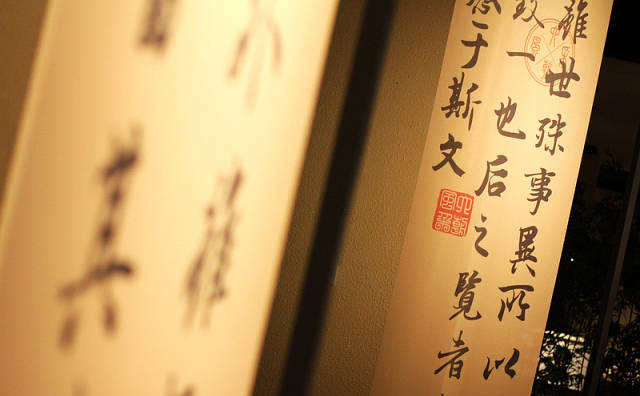 雖世殊事異所以
致一也后之覽者
感于斯文
六朝
風
其